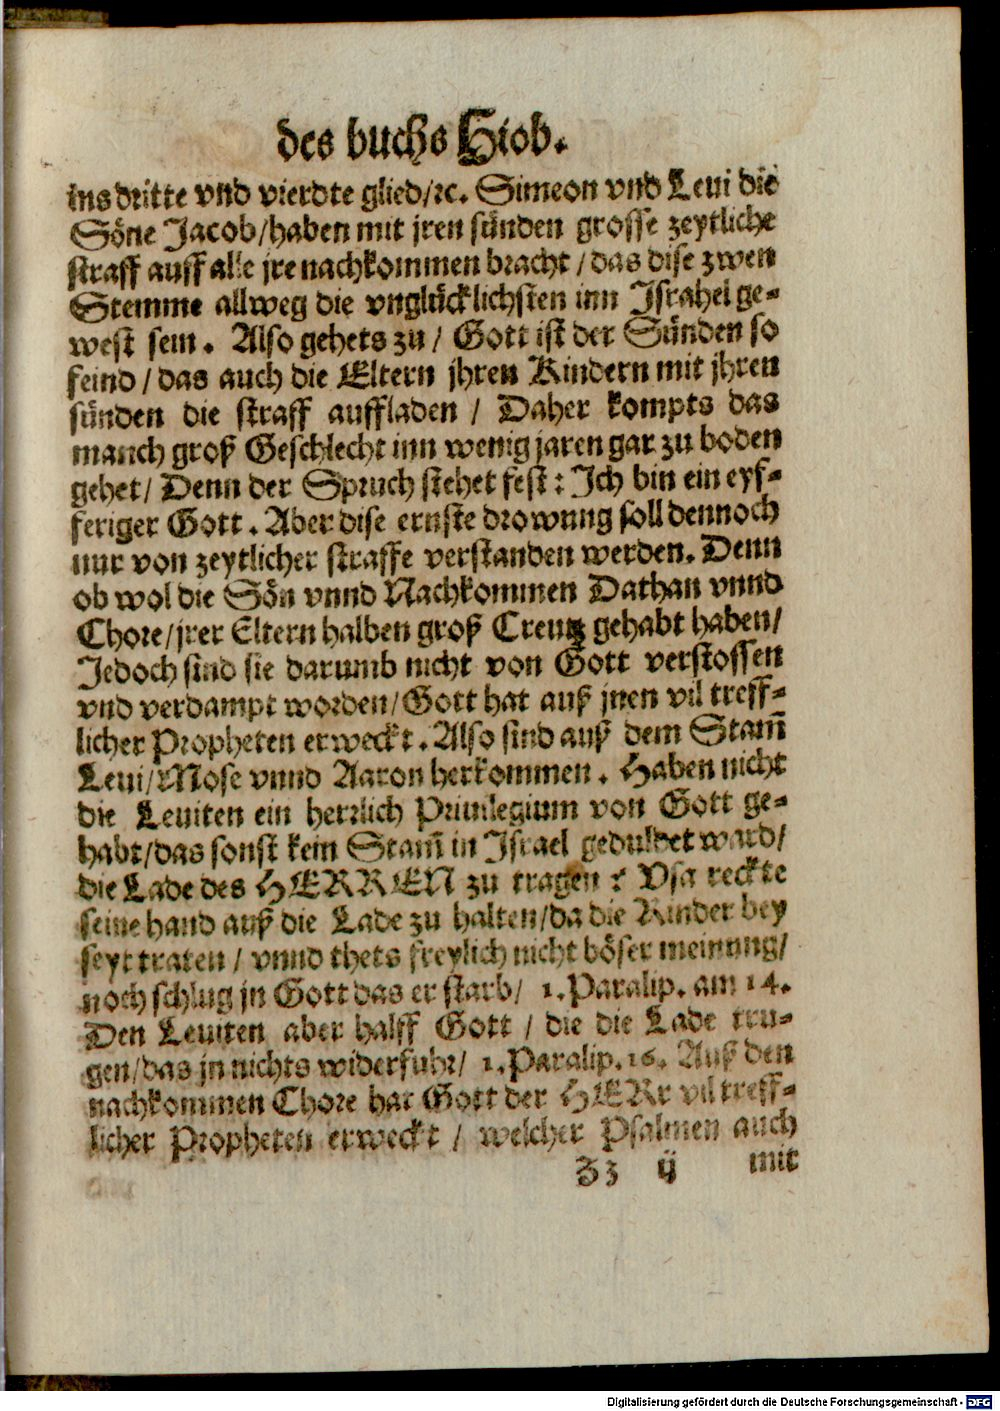 des buchs Hiob.
ins dritte vnd vierdte glied/ꝛc. Simeon vnd Leui die
Söne Jacob/haben mit jren sünden grosse zeytliche
straff auff alle jre nachkommen bracht/das dise zwen
Stemme allweg die vnglücklichsten inn Israhel ge-
west sein. Also gehets zu/ Gott ist der Sünden so
feind/das auch die Eltern jhren Kindern mit jhren
sünden die straff auffladen/ Daher kompts das
manch groß Geschlecht inn wenig jaren gar zu boden
gehet/ Denn der Spruch stehet fest: Ich bin ein eyf-
feriger Gott. Aber dise ernste drowung soll dennoch
nur von zeytlicher straffe verstanden werden. Denn
ob wol die Sön vnnd Nachkommen Dathan vnnd
Chore/jrer Eltern halben groß Creutz gehabt haben/
Jedoch sind sie darumb nicht von Gott verstossen
vnd verdampt worden/Gott hat auß jnen vil treff-
licher Propheten erweckt. Also sind auß dem Stam̄
Leui/Mose vnnd Aaron herkommen. Haben nicht
die Leuiten ein herrlich Priuilegium von Gott ge-
habt/das sonst kein Stam̄ in Israel geduldet ward/
die Lade des HERREN zu tragen? Vsa reckte
seine hand auß die Lade zu halten/da die Rinder bey
seyt traten/ vnnd thets freylich nicht böser meinung/
noch schlug jn Gott das er starb/ 1. Paralip. am 14.
Den Leuiten aber halff Gott/ die die Lade tru-
gen/das jn nichts widerfuhr/ 1. Paralip. 16. Auß den
nachkommen Chore hat Gott der HERr vil treff-
licher Propheten erweckt/ welcher Psalmen auch
Zz ij mit
Digitalisierung gefördert durch die Deutsche Forschungsgemeinschaft - DFG